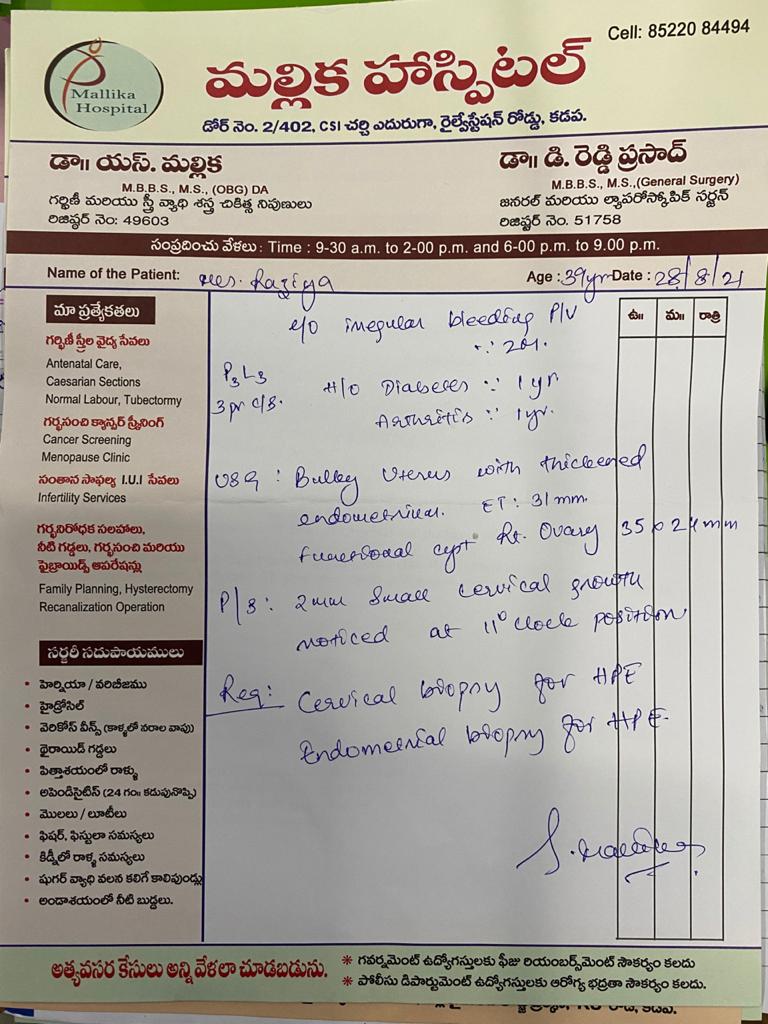 Cell: 85222 84494
Mallika
Hospital
మల్లిక హాస్పిటల్
డోర్ నెం. 2/402, CSI చర్చి ఎదురుగా, రైల్వేస్టేషన్ రోడ్డు, కడప.
డా|| యస్. మల్లిక
M.B.B.S., M.S., (OBG) DA
గర్భిణీ మరియు స్త్రీ వ్యాధి శస్త్ర చికిత్స నిపుణులు
రిజిష్టర్ నెం: 49603
డా|| డి. రెడ్డి ప్రసాద్
M.B.B.S., M.S.,(General Surgery)
జనరల్ మరియు ల్యాపరోస్కోపిక్ సర్జన్
రిజిష్టర్ నెం. 51758
సంప్రదించు వేళలు: Time : 9-30 a.m. to 2-00 p.m. and 6-00 p.m. to 9.00 p.m.
Name of the Patient: Mrs. Raziya Age : 39yr Date : 28/8/21
మా ప్రత్యేకతలు
గర్భిణీ స్త్రీల వైద్య సేవలు
Antenatal Care,
Caesarian Sections
Normal Labour, Tubectormy
గర్భసంచి క్యాన్సర్ స్క్రీనింగ్
Cancer Screening
Menopause Clinic
సంతాన సాఫల్య I.U.I సేవలు
Infertility Services
గర్భనిరోధక సలహాలు,
నీటి గడ్డలు, గర్భసంచి మరియు
ఫైబ్రాయిడ్స్ ఆపరేషన్లు
Family Planning, Hysterectomy
Recanalization Operation
సర్జరీ సదుపాయములు
• హెర్నియా / వరిబీజము
• హైడ్రోసిల్
• వెరికోస్ వీన్స్ (కాళ్ళలో నరాల వాపు)
• థైరాయిడ్ గడ్డలు
• పిత్తాశయంలో రాళ్ళు
• అపెండిసైటిస్ (24 గం॥ కడుపునొప్పి)
• మొలలు / లూటీలు
• ఫిషర్, ఫిస్టులా సమస్యలు
• కిడ్నీలో రాళ్ళ సమస్యలు
• షుగర్ వ్యాధి వలన కలిగే కాలిపుండ్లు
• అండాశయంలో నీటి బుడ్డలు.
ఉ॥ మ॥ రాత్రి
c/o irregular bleeding P/V
P3L3
3 pr c/s.
H/o Diabetes ∵ 1 yr
Arthritis ∵ 1yr.
USG : Bulky Uterus with thickened
endometrium. ET : 31 mm.
functional cyst Rt. Ovary 35 x 24 mm
P/S : 2mm Small cervical growth
noticed at 11 o clock position
Req: Cervical biopsy for HPE
Endometrial biopsy for HPE.
అత్యవసర కేసులు అన్నివేళలా చూడబడును.
* గవర్నమెంట్ ఉద్యోగస్తులకు ఫీజు రియంబర్స్‌మెంట్ సౌకర్యం కలదు
* పోలీసు డిపార్టుమెంట్ ఉద్యోగస్తులకు ఆరోగ్య భద్రతా సౌకర్యం కలదు.